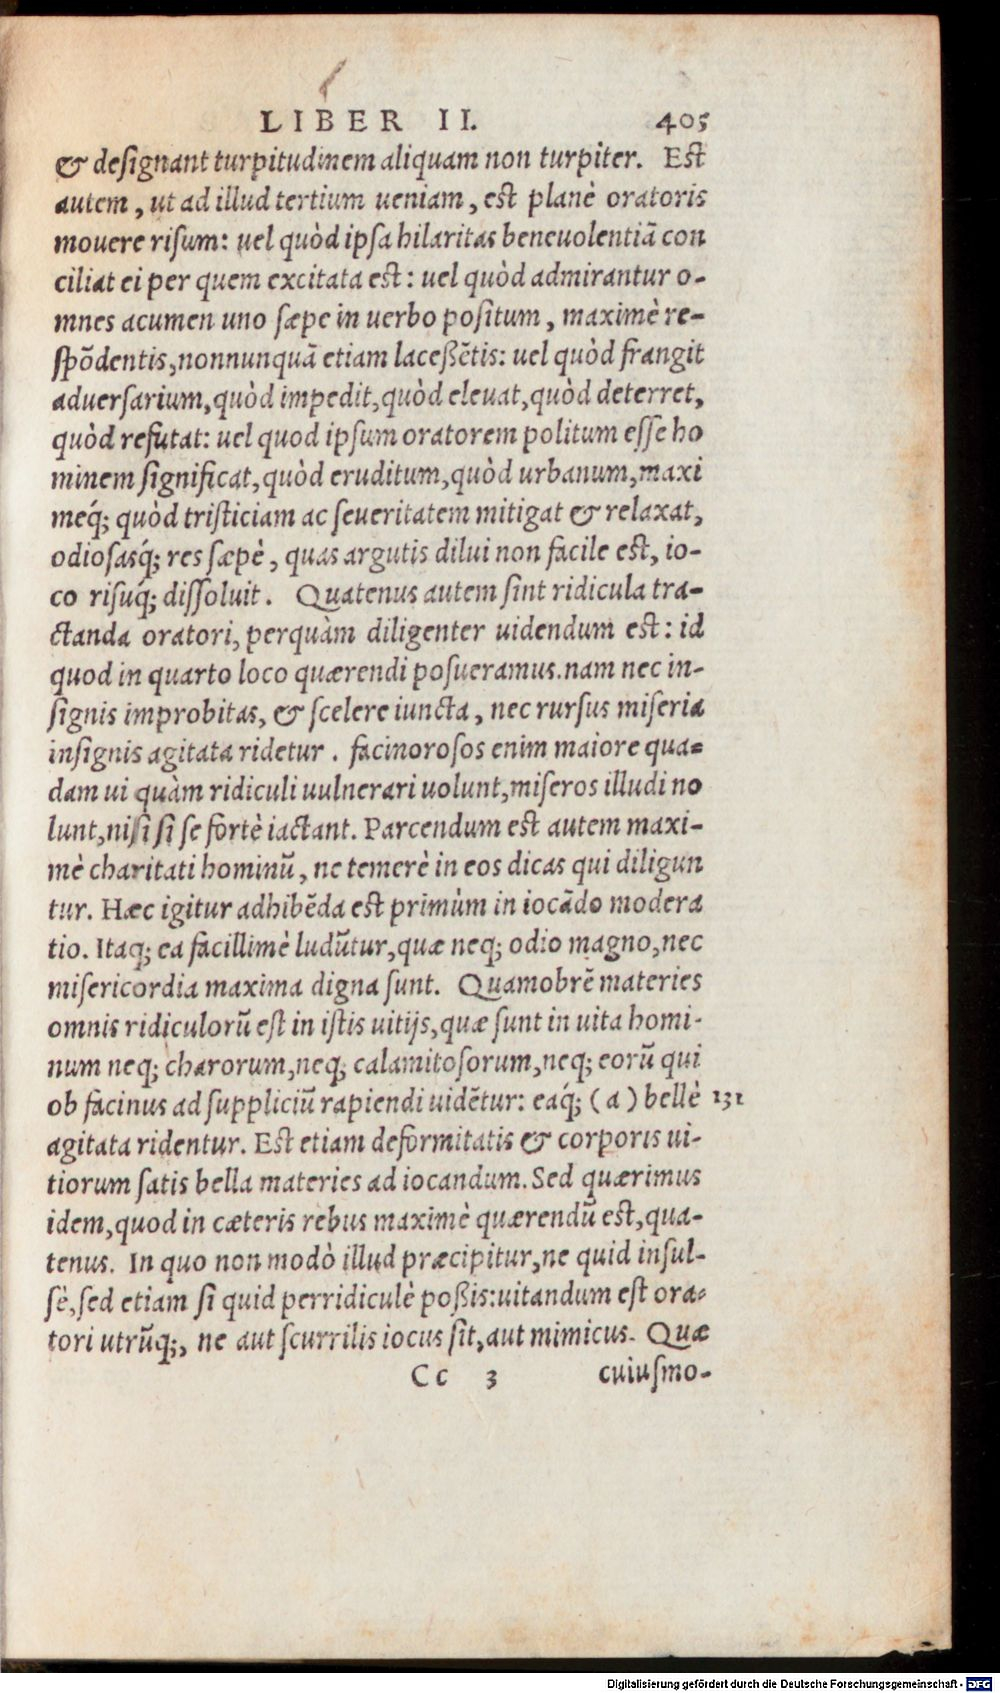 LIBER II. 405
& designant turpitudinem aliquam non turpiter. Est
autem, ut ad illud tertium ueniam, est planè oratoris
mouere risum: uel quòd ipsa hilaritas beneuolentiã con
ciliat ei per quem excitata est: uel quòd admirantur o-
mnes acumen uno sæpe in uerbo positum, maximè re-
spõdentis, nonnunquã etiam laceßẽtis: uel quòd frangit
aduersarium, quòd impedit, quòd eleuat, quòd deterret,
quòd refutat: uel quod ipsum oratorem politum esse ho
minem significat, quòd eruditum, quòd urbanum, maxi
meq́; quòd tristiciam ac seueritatem mitigat & relaxat,
odiosasq́; res sæpè, quas argutis dilui non facile est, io-
co risuq́; dissoluit. Quatenus autem sint ridicula tra-
ctanda oratori, perquàm diligenter uidendum est: id
quod in quarto loco quærendi posueramus. nam nec in-
signis improbitas, & scelere iuncta, nec rursus miseria
insignis agitata ridetur. facinorosos enim maiore qua-
dam ui quàm ridiculi uulnerari uolunt, miseros illudi no
lunt, nisi si se fortè iactant. Parcendum est autem maxi-
mè charitati hominũ, ne temerè in eos dicas qui diligun
tur. Hæc igitur adhibẽda est primùm in iocãdo modera
tio. Itaq; ea facillimè ludũtur, quæ neq; odio magno, nec
misericordia maxima digna sunt. Quamobrẽ materies
omnis ridiculorũ est in istis uitijs, quæ sunt in uita homi-
num neq; charorum, neq; calamitosorum, neq; eorũ qui
ob facinus ad suppliciũ rapiendi uidẽtur: eaq́; (a) bellè 131
agitata ridentur. Est etiam deformitatis & corporis ui-
tiorum satis bella materies ad iocandum. Sed quærimus
idem, quod in cæteris rebus maximè quærendũ est, qua-
tenus. In quo non modò illud præcipitur, ne quid insul-
sè, sed etiam si quid perridiculè poßis: uitandum est ora-
tori utrũq;, ne aut scurrilis iocus sit, aut mimicus. Quæ
Cc 3 cuiusmo-
Digitalisierung gefördert durch die Deutsche Forschungsgemeinschaft - DFG